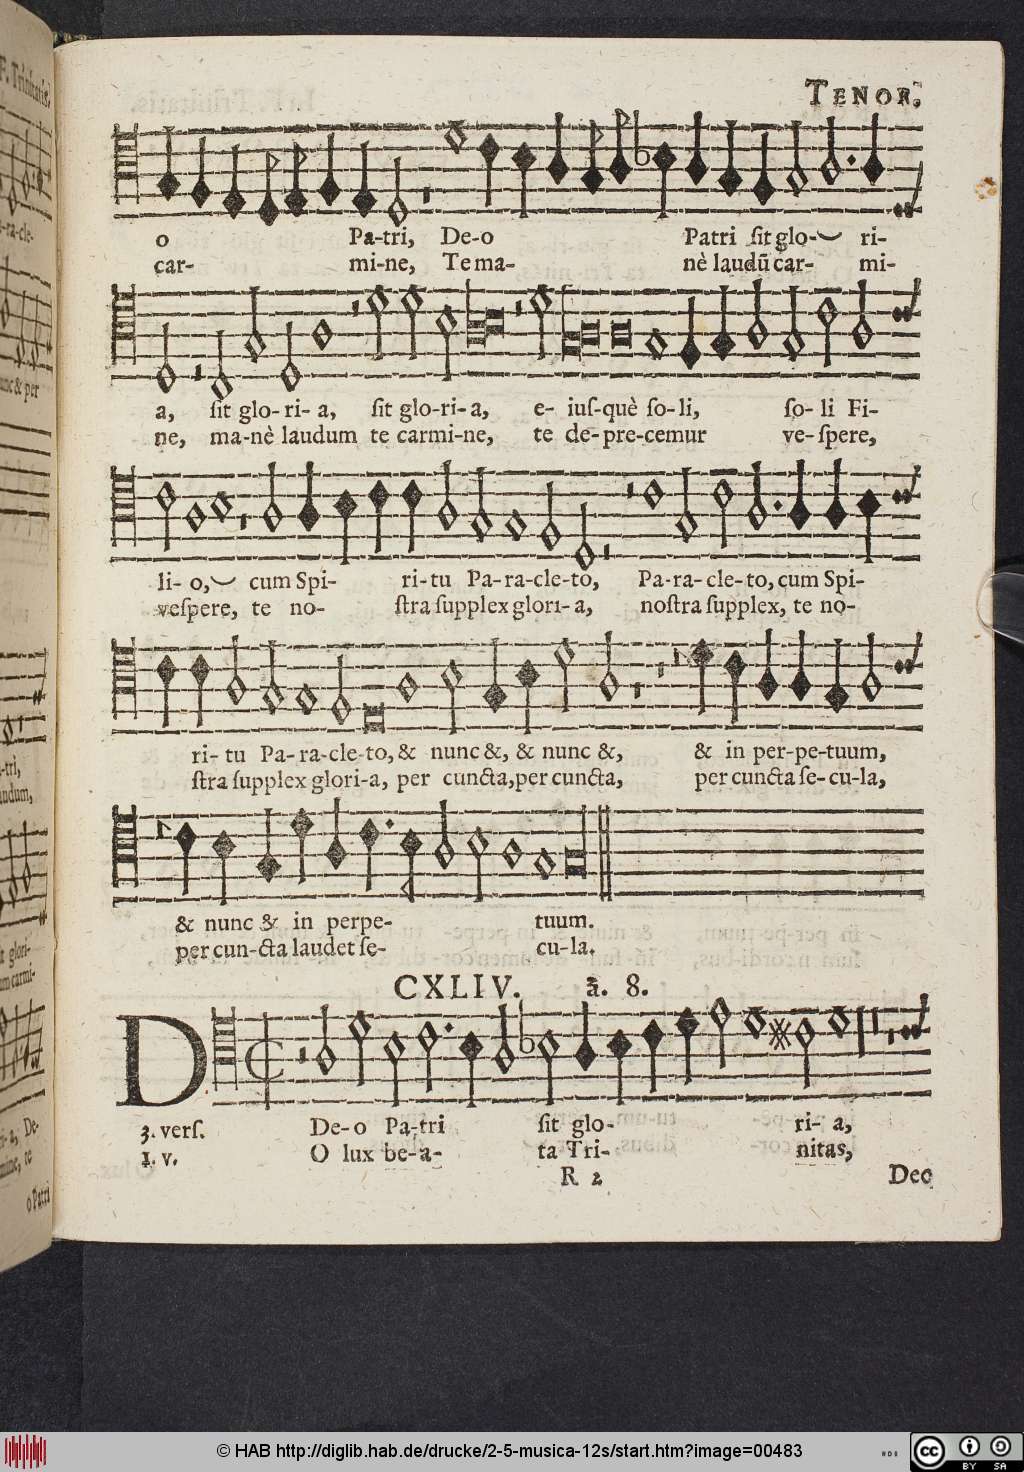 TENOR.
o Pa-tri, De-o Patri ſit glo- ri-
car- mi-ne, Te ma- nè laudū car- mi-
a, ſit glo-ri-a, ſit glo-ri-a, e- iuſ-què ſo-li, ſo- li Fi-
ne, ma-nè laudum te carmi-ne, te de-pre-cemur ve-ſpere,
li- o, cum Spi- ri-tu Pa-ra-cle-to, Pa-ra-cle-to, cum Spi-
veſpere, te no- ſtra ſupplex glori-a, noſtra ſupplex, te no-
ri-tu Pa-ra-cle-to, & nunc &, & nunc &, & in per-pe-tuum,
ſtra ſupplex glori-a, per cuncta, per cuncta, per cuncta ſe-cu-la,
& nunc & in perpe- tuum.
per cun-cta laudet ſe- cu-la.
CXLIV. à. 8.
3. verſ. De-o Pa-tri ſit glo- ri-a,
1. v. O lux be-a- ta Tri- nitas,
R 2 Deo
© HAB http://diglib.hab.de/drucke/2-5-musica-12s/start.htm?image=00483
cc BY SA